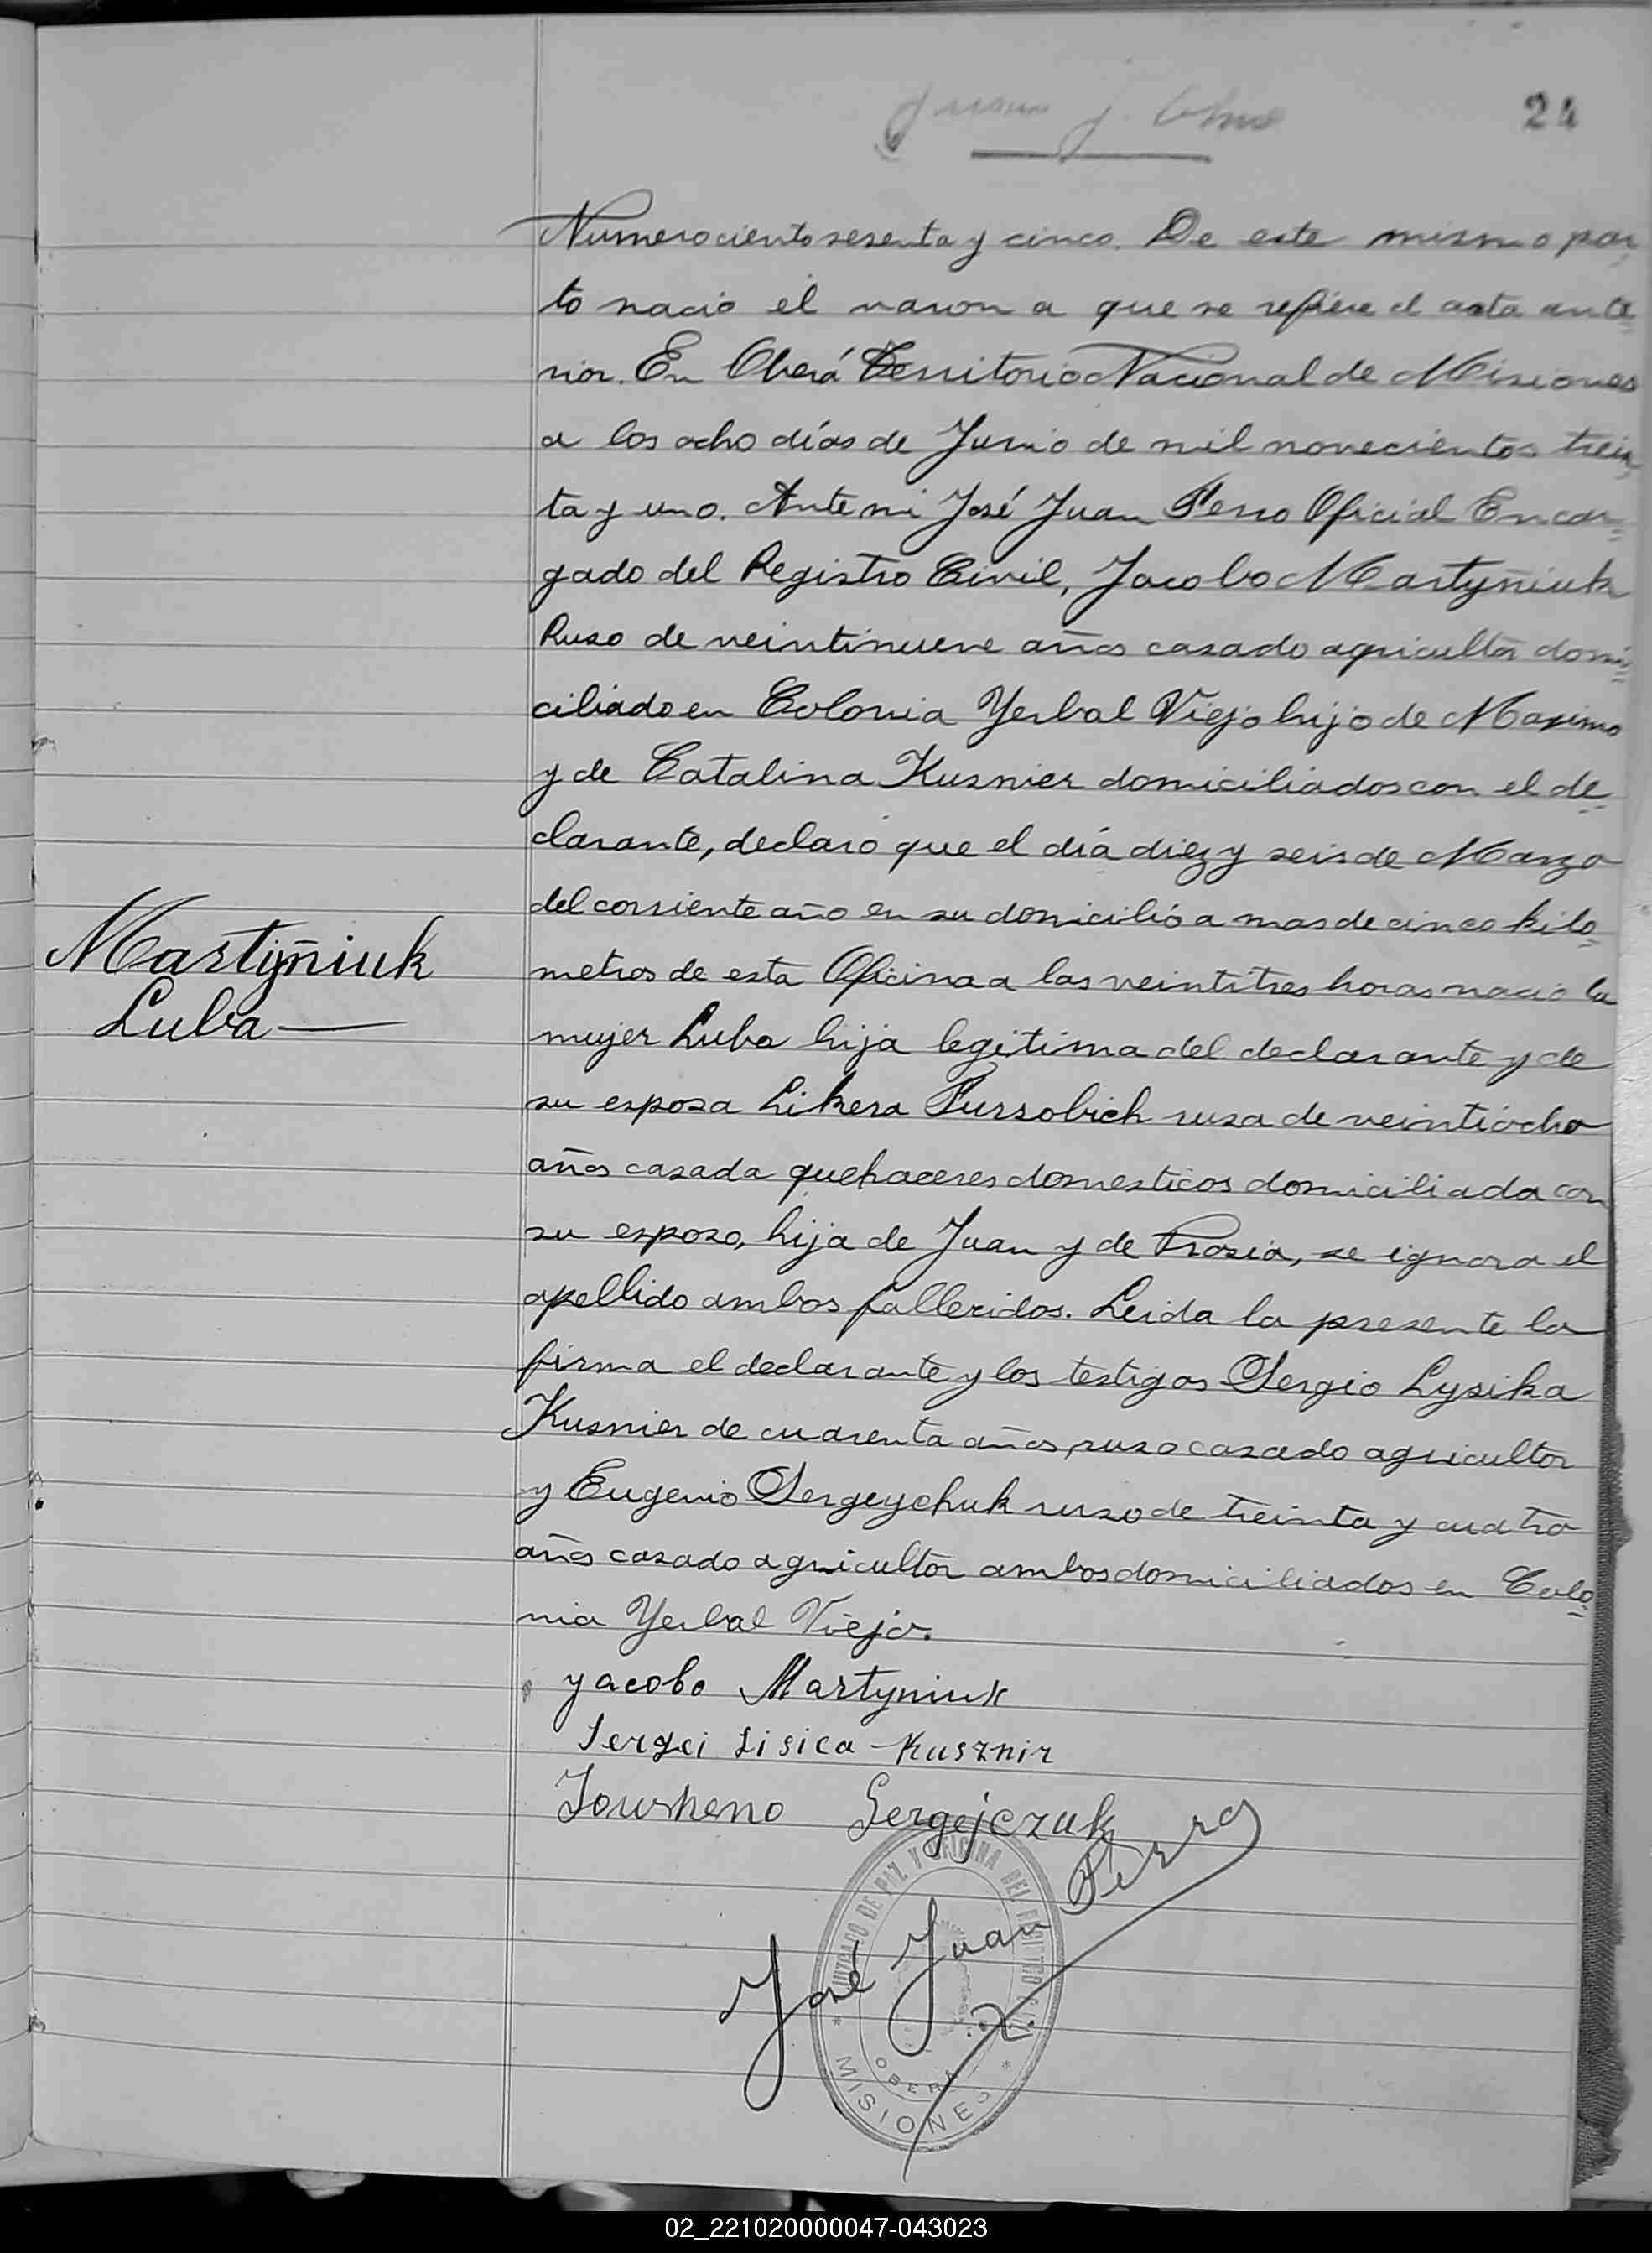 24
Numero ciento sesenta y cinco. De este mismo par
to nacio el varon a que se refiere el acta ante
rior. En Oberá Territorio Nacional de Misiones
a los ocho días de Junio de mil novecientos trein
ta y uno. Ante mi José Juan Ferro Oficial Encar
gado del Registro Civil, Jacobo Martyñiuk
Ruso de veintinueve años casado agricultor domi
ciliado en Colonia Yerbal Viejo hijo de Maximo
y de Catalina Kusnier domiciliados con el de
clarante, declaró que el día diez y seis de Marzo
del corriente año en su domicilio a mas de cinco kilo
Martyñiuk
Luba
metros de esta Oficina a las veintitres horas nació la
mujer Luba hija legitima del declarante y de
su esposa Likera Fursobich rusa de veintiocho
años casada quehaceres domesticos domiciliada con
su esposo, hija de Juan y de Prosia, se ignora el
apellido ambos falleridos. Leida la presente la
firma el declarante y los testigos Sergio Lysika
Kusnier de cuarenta años, ruso casado agricultor
y Eugenio Sergeychuk ruso de treinta y cuatro
años casado agricultor ambos domiciliados en Colo
nia Yerbal Viejo.
yacobo Martyniuk
Sergei Lisica-Kusznir
Sergejczuk
José Juan Ferro
JUZGADO DE PAZ Y OFICINA DEL REGISTRO CIVIL
OBERÁ
MISIONES
02_221020000047-043023